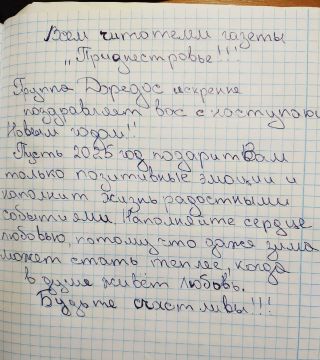 Всем читателям газеты
„Приднестровье"!!!
Группа Доредос искренне
поздравляет вас с наступаю
Новым годом!!
Пусть 2025 год подарит Вам
только позитивные эмоции и
наполнит жизнь радостными
событиями. Наполняйте сердце
любовью, потому что даже зима
может стать теплее, когда
в душе живёт любовь.
Будьте счастливы!!!